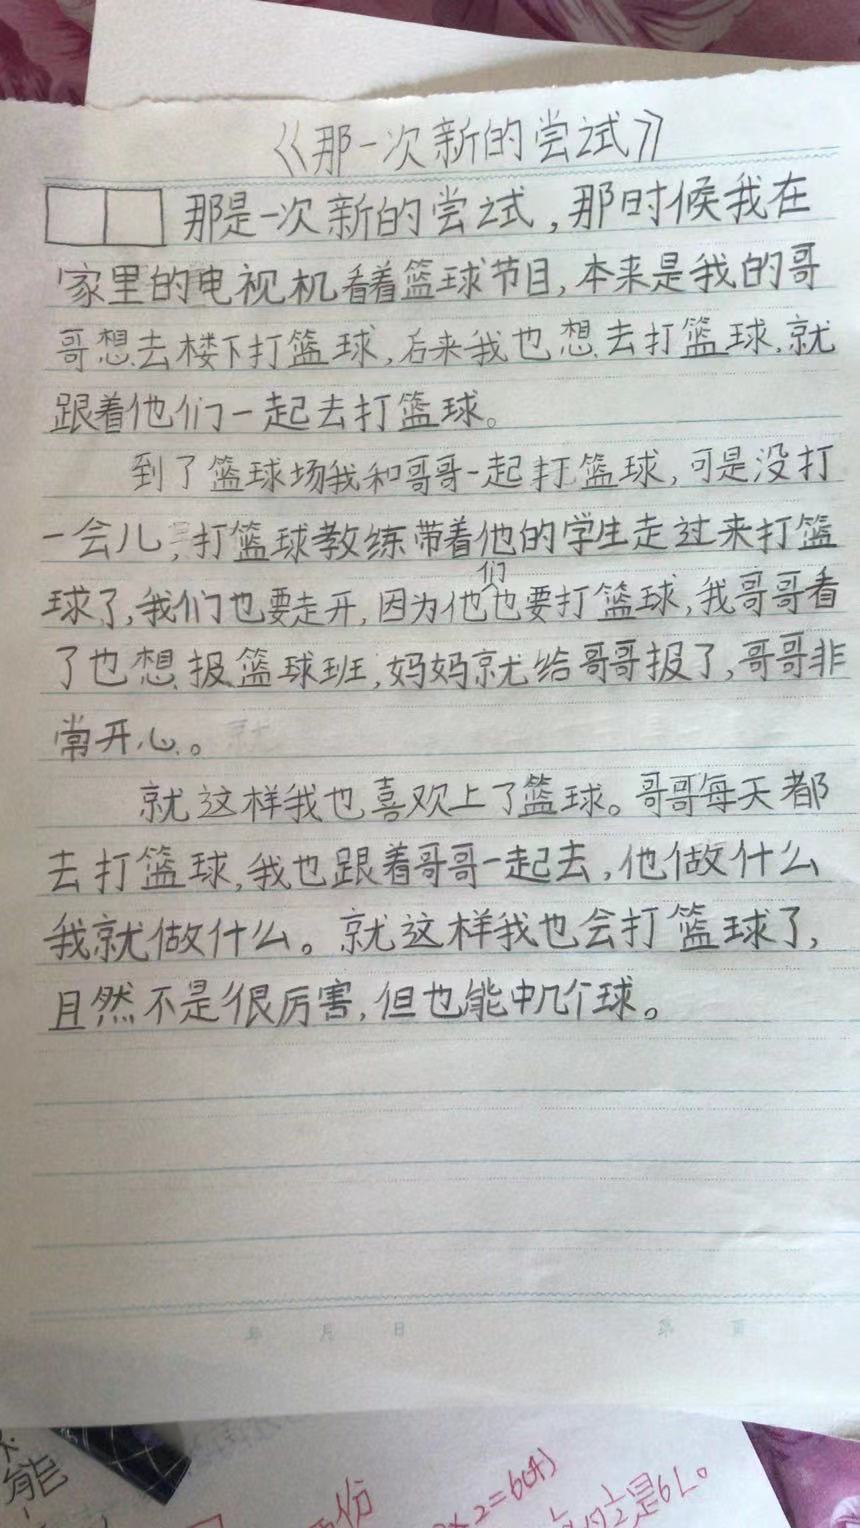 《那一次新的尝试》
那是一次新的尝试，那时候我在
家里的电视机看着篮球节目，本来是我的哥
哥想去楼下打篮球，后来我也想去打篮球，就
跟着他们一起去打篮球。
到了篮球场我和哥哥一起打篮球，可是没打
一会儿，打篮球教练带着他的学生走过来打篮
球了，我们也要走开，因为他们也要打篮球，我哥哥看
了也想报篮球班，妈妈就给哥哥报了，哥哥非
常开心。
就这样我也喜欢上了篮球。哥哥每天都
去打篮球，我也跟着哥哥一起去，他做什么
我就做什么。就这样我也会打篮球了，
且然不是很厉害，但也能中几个球。
年 月 日 第 页
能
份
×2=6(升)
1/2是6L。